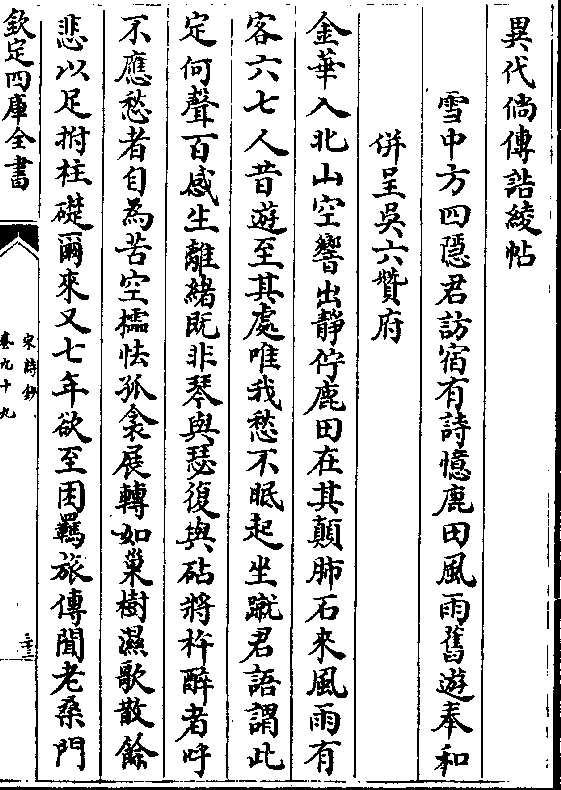 異代倘傳誥綾帖
雪中方四隱君訪宿有詩憶鹿田風雨舊遊奉和
併呈吳六贊府
金華入北山空響出靜佇鹿田在其顛肺石來風雨有
客六七人昔遊至其處唯我愁不眠起坐蹴君語謂此
定何聲百感生離緒既非琴與瑟復與砧將杵醉者呼
不應愁者自為苦空檽怯孤衾展轉如巢樹濕歌散餘
悲以足拊柱礎爾來又七年欲至困羈旅傳聞老桑門
欽定四庫全書
宋詩鈔
卷九十九
二十三